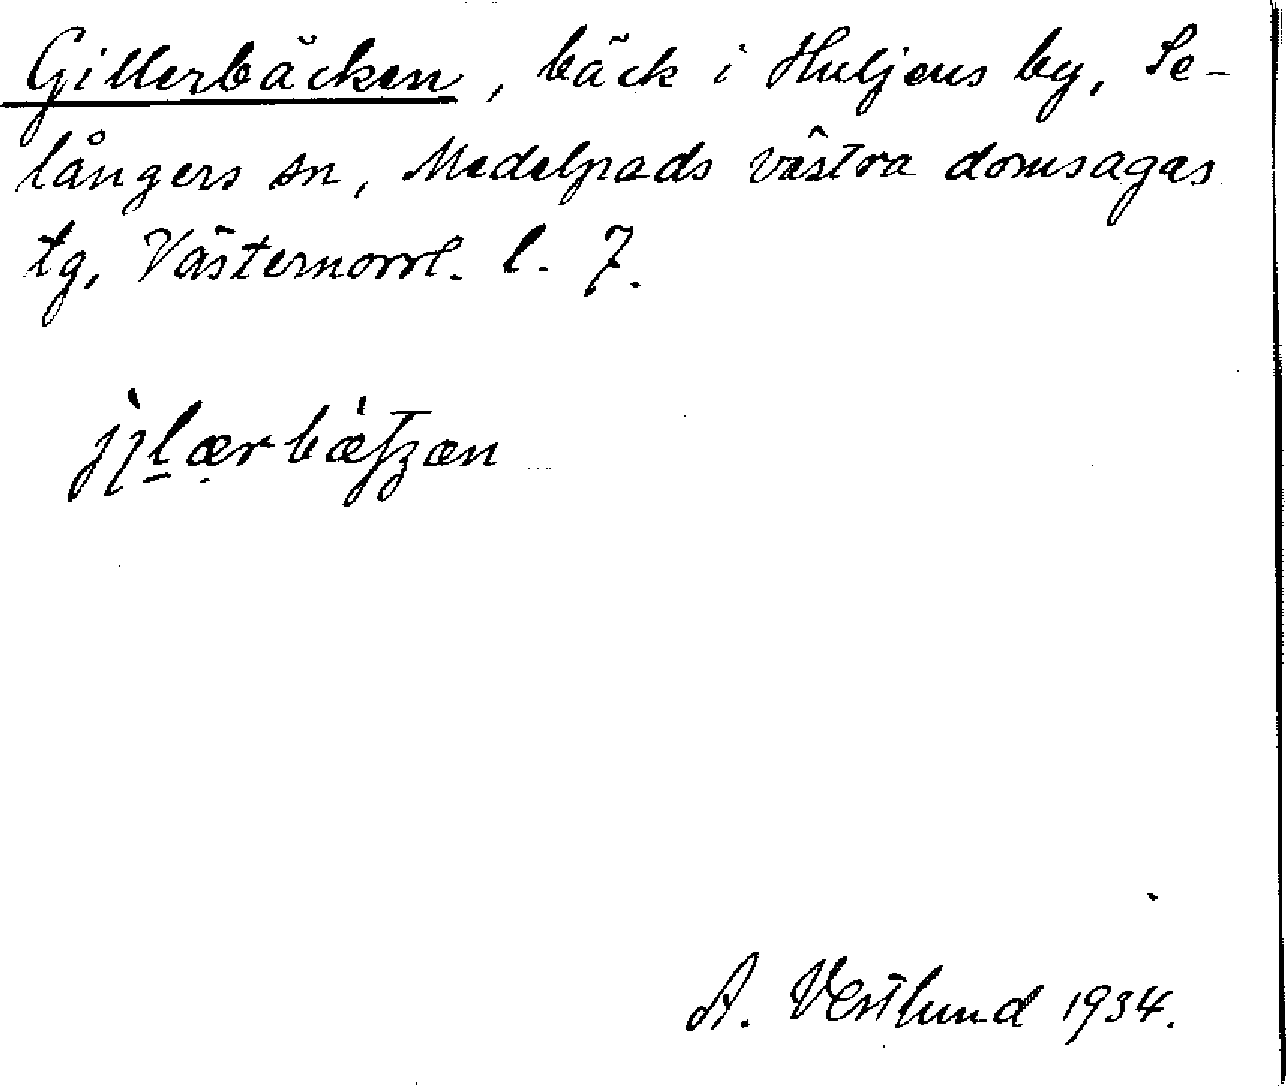 Gillerbäcken, bäck i Huljens by, Se-
långers sn, Medelpads västra domsagas
tg, Västernorrl. l. 7.
A. Vestlund 1934.